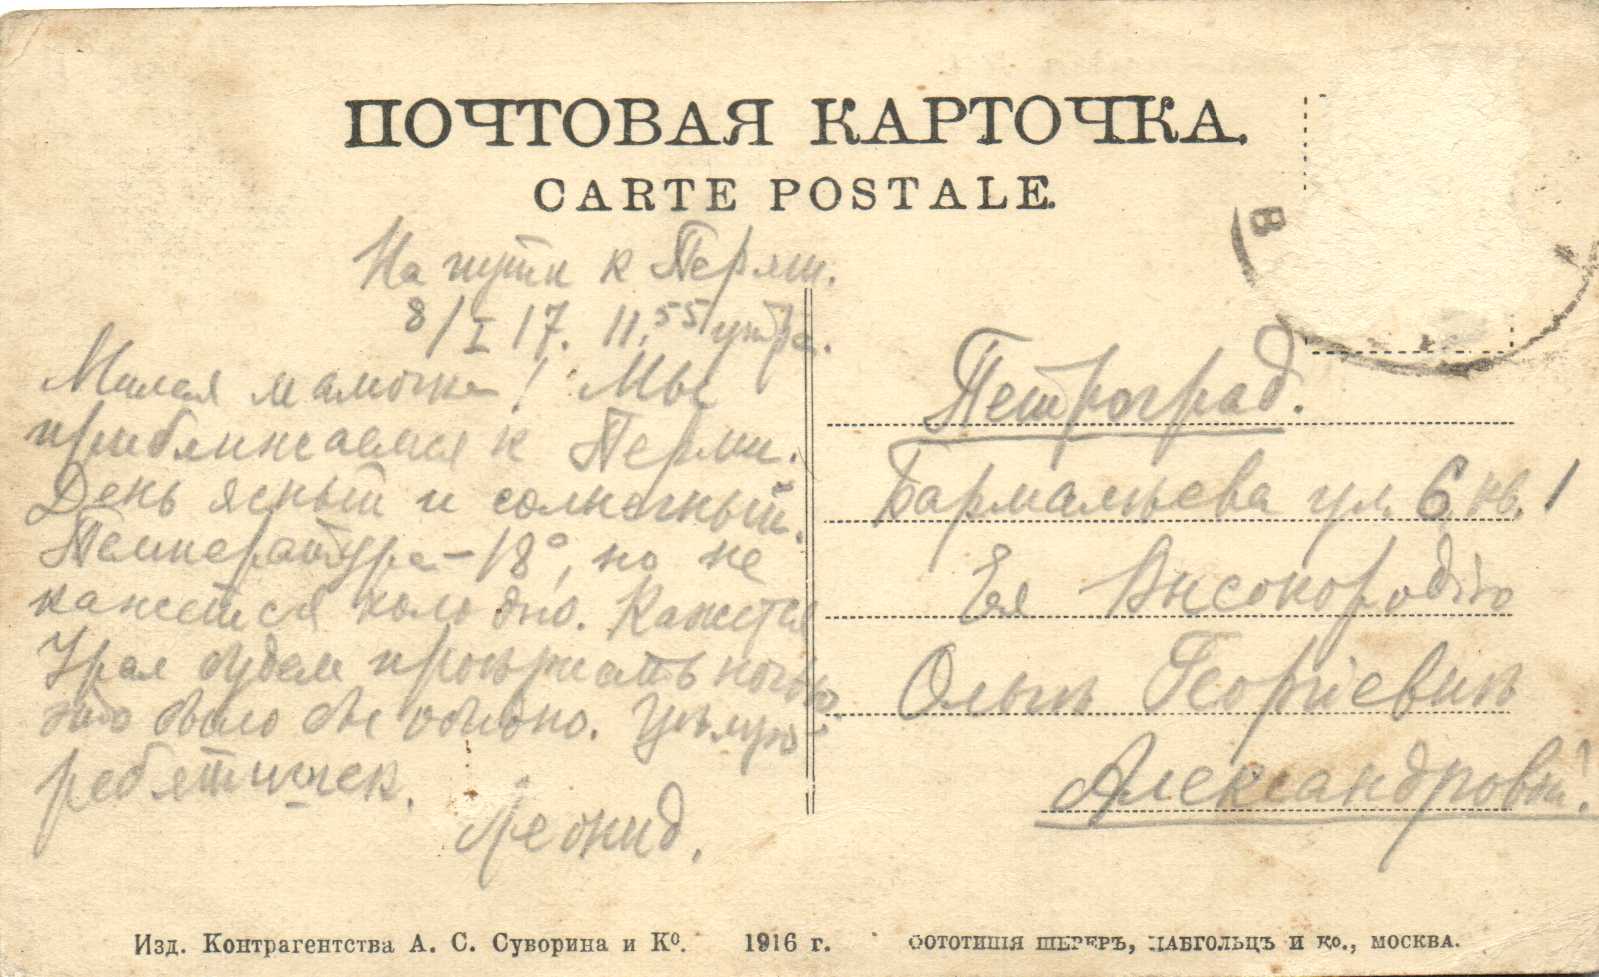 ПОЧТОВАЯ КАРТОЧКА.
CARTE POSTALE.
В
На пути к Перми.
8/I 17. 11.55 утра.
Милая мамочка! Мы
приближаемся к Перми.
День ясный и солнечный.
Температура –18°, но не
кажется холодно. Кажется
Урал будем проѣзжать ночью
это было бы обидно. Цѣлую
ребятишек.
Леонид.
Петроград.
Бармалѣева ул. 6, кв. 1
Ея Высокородію
Ольгѣ Георгіевнѣ
Александровой.
Изд. Контрагентства А. С. Суворина и Ко. 1916 г.
ФОТОТИПІЯ ШЕРЕРЪ, НАБГОЛЬЦЪ И Ко., МОСКВА.